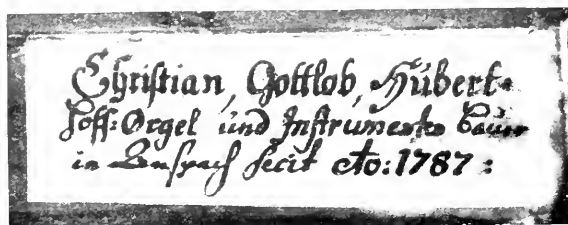 Christian, Gottlob, Hübert
Hoff: Orgel und Instrumenten bauer
in Anspach fecit Ao: 1787: